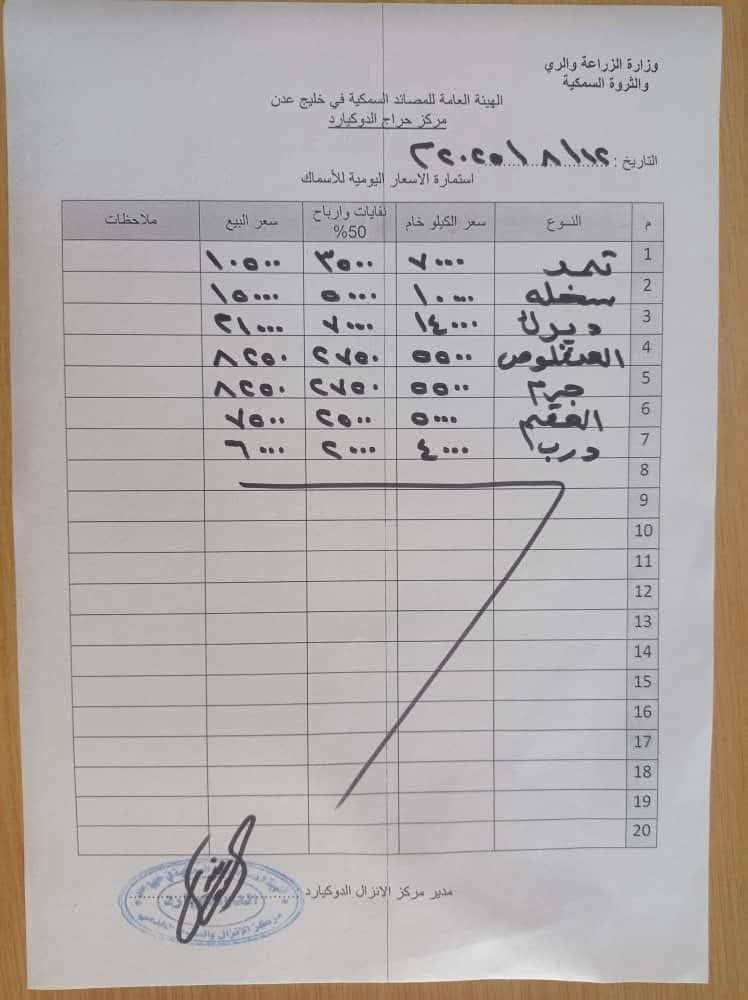 وزارة الزراعة والري
والثروة السمكية
الهيئة العامة للمصائد السمكية في خليج عدن
مركز حراج الدوكيارد
التاريخ : ١٢/ ٨ /٢٠٢٥م
استمارة الاسعار اليومية للأسماك
م النوع سعر الكيلو خام نفايات وارباح 50% سعر البيع ملاحظات
1 ثمد ٧٠٠٠ ٣٥٠٠ ١٠٥٠٠
2 سخله ١٠٠٠٠ ٥٠٠٠ ١٥٠٠٠
3 ديرك ١٤٠٠٠ ٧٠٠٠ ٢١٠٠٠
4 ٥٥٠٠ ٢٧٥٠ ٨٢٥٠
5 جرم ٥٥٠٠ ٢٧٥٠ ٨٢٥٠
6 ٥٠٠٠ ٢٥٠٠ ٧٥٠٠
7 درب ٤٠٠٠ ٢٠٠٠ ٦٠٠٠
8
9
10
11
12
13
14
15
16
17
18
19
20
مدير مركز الانزال الدوكيارد
مركز الانزال